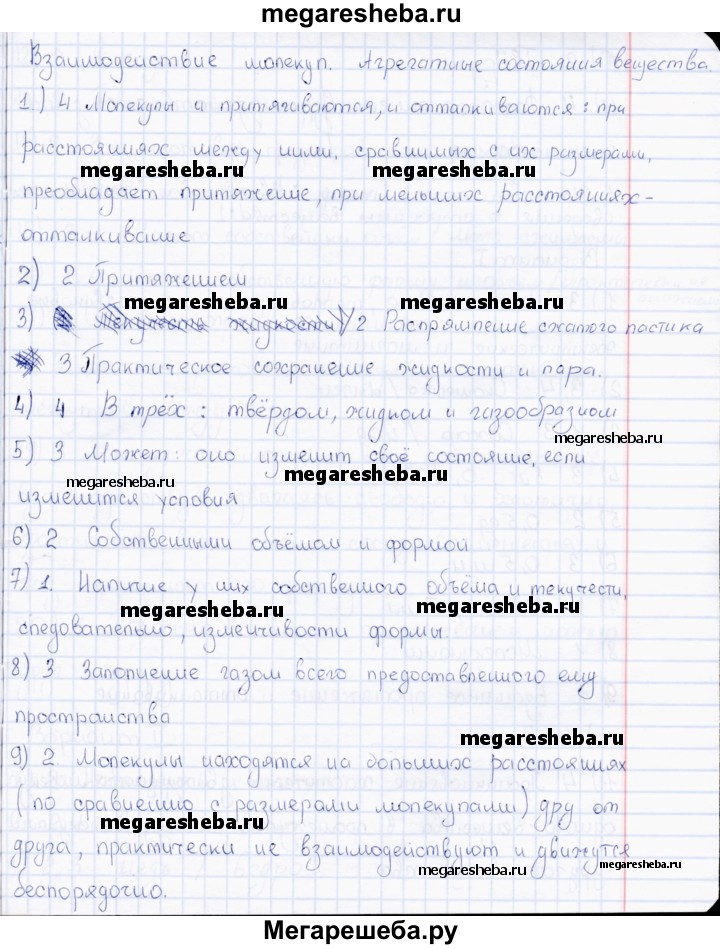 megaresheba.ru
Взаимодействие молекул. Агрегатные состояния вещества.
1) 4 Молекулы и притягиваются, и отталкиваются: при
расстояниях между ними, сравнимых с их размерами,
megaresheba.ru megaresheba.ru
преобладает притяжение, при меньших расстояниях-
отталкивание
2) 2 Притяжением
megaresheba.ru megaresheba.ru
3) 2 Распрямление сжатого ластика
3 Практическое сохранение жидкости и пара.
4) 4 В трёх: твёрдом, жидком и газообразном
megaresheba.ru
5) 3 Может: оно изменит своё состояние, если
megaresheba.ru megaresheba.ru
изменится условия
6) 2 Собственными объёмом и формой
7) 1. Наличие у них собственного объёма и текучести,
megaresheba.ru megaresheba.ru
следовательно, изменчивости формы.
8) 3 Заполнение газом всего предоставленного ему
пространства
megaresheba.ru
9) 2. Молекулы находятся на больших расстояниях
(по сравнению с размерами молекулами) дру от
megaresheba.ru
друга, практически не взаимодействуют и движутся
megaresheba.ru megaresheba.ru
беспорядочно.
Мегарешеба.ру